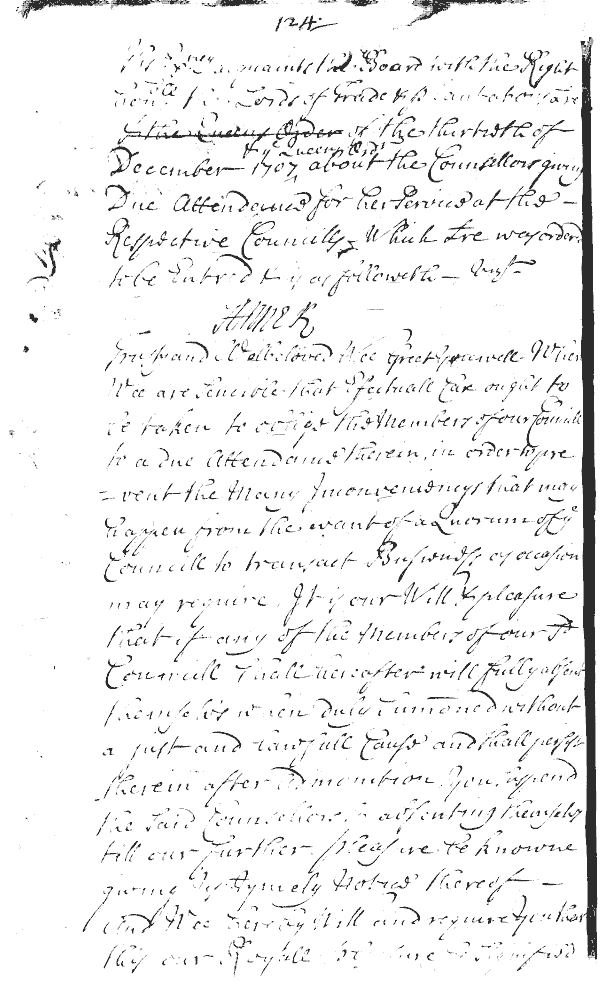 124
His Exncy acquaints the Board with the Right
Honble the Lords of Trade & Plantations are
to the Queens Order of the thirtieth of
& ye Queens Ordr
December 1707 about the Counsellors giving
Due Attendance for her Service at the
Respective Councills, Which Lre was ordered
to be Entred & is as followeth Vizt
ANNE R
Trusty and Wellbeloved Wee Greet you well When
Wee are Sencible that Effectuall Care ought to
be taken to oblige the Members of our Councill
to a due Attendance therein, in order to pre
=vent the Many Inconveniencys that may
happen from the want of a Quorum of ye
Councill to transact Business as occasion
may require. It is our Will & pleasure
that if any of the Members of our sd
Councill Shall hereafter will fully absent
themselves when duly Summoned without
a just and Lawfull Cause and shall persist
therein after admonition You Suspend
the said Counsellors so absenting themselves
till our further pleasure be knowne
giving Us tymely Notice thereof
And Wee hereby Will and require you that
this our Royall pleasure be Signified